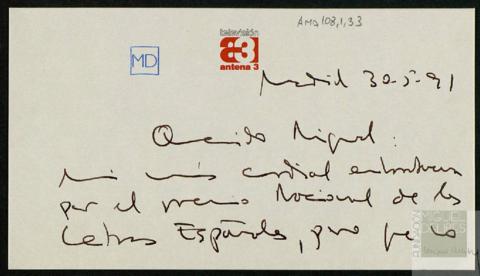 AMD,108,1,33
MD
televisión
a3
antena 3
Madrid 30-5-91
Querido Miguel:
Mi más cordial enhorabuena
por el premio Nacional de las
Letras Españolas, pero
FUNDACIÓN MIGUEL DELIBES